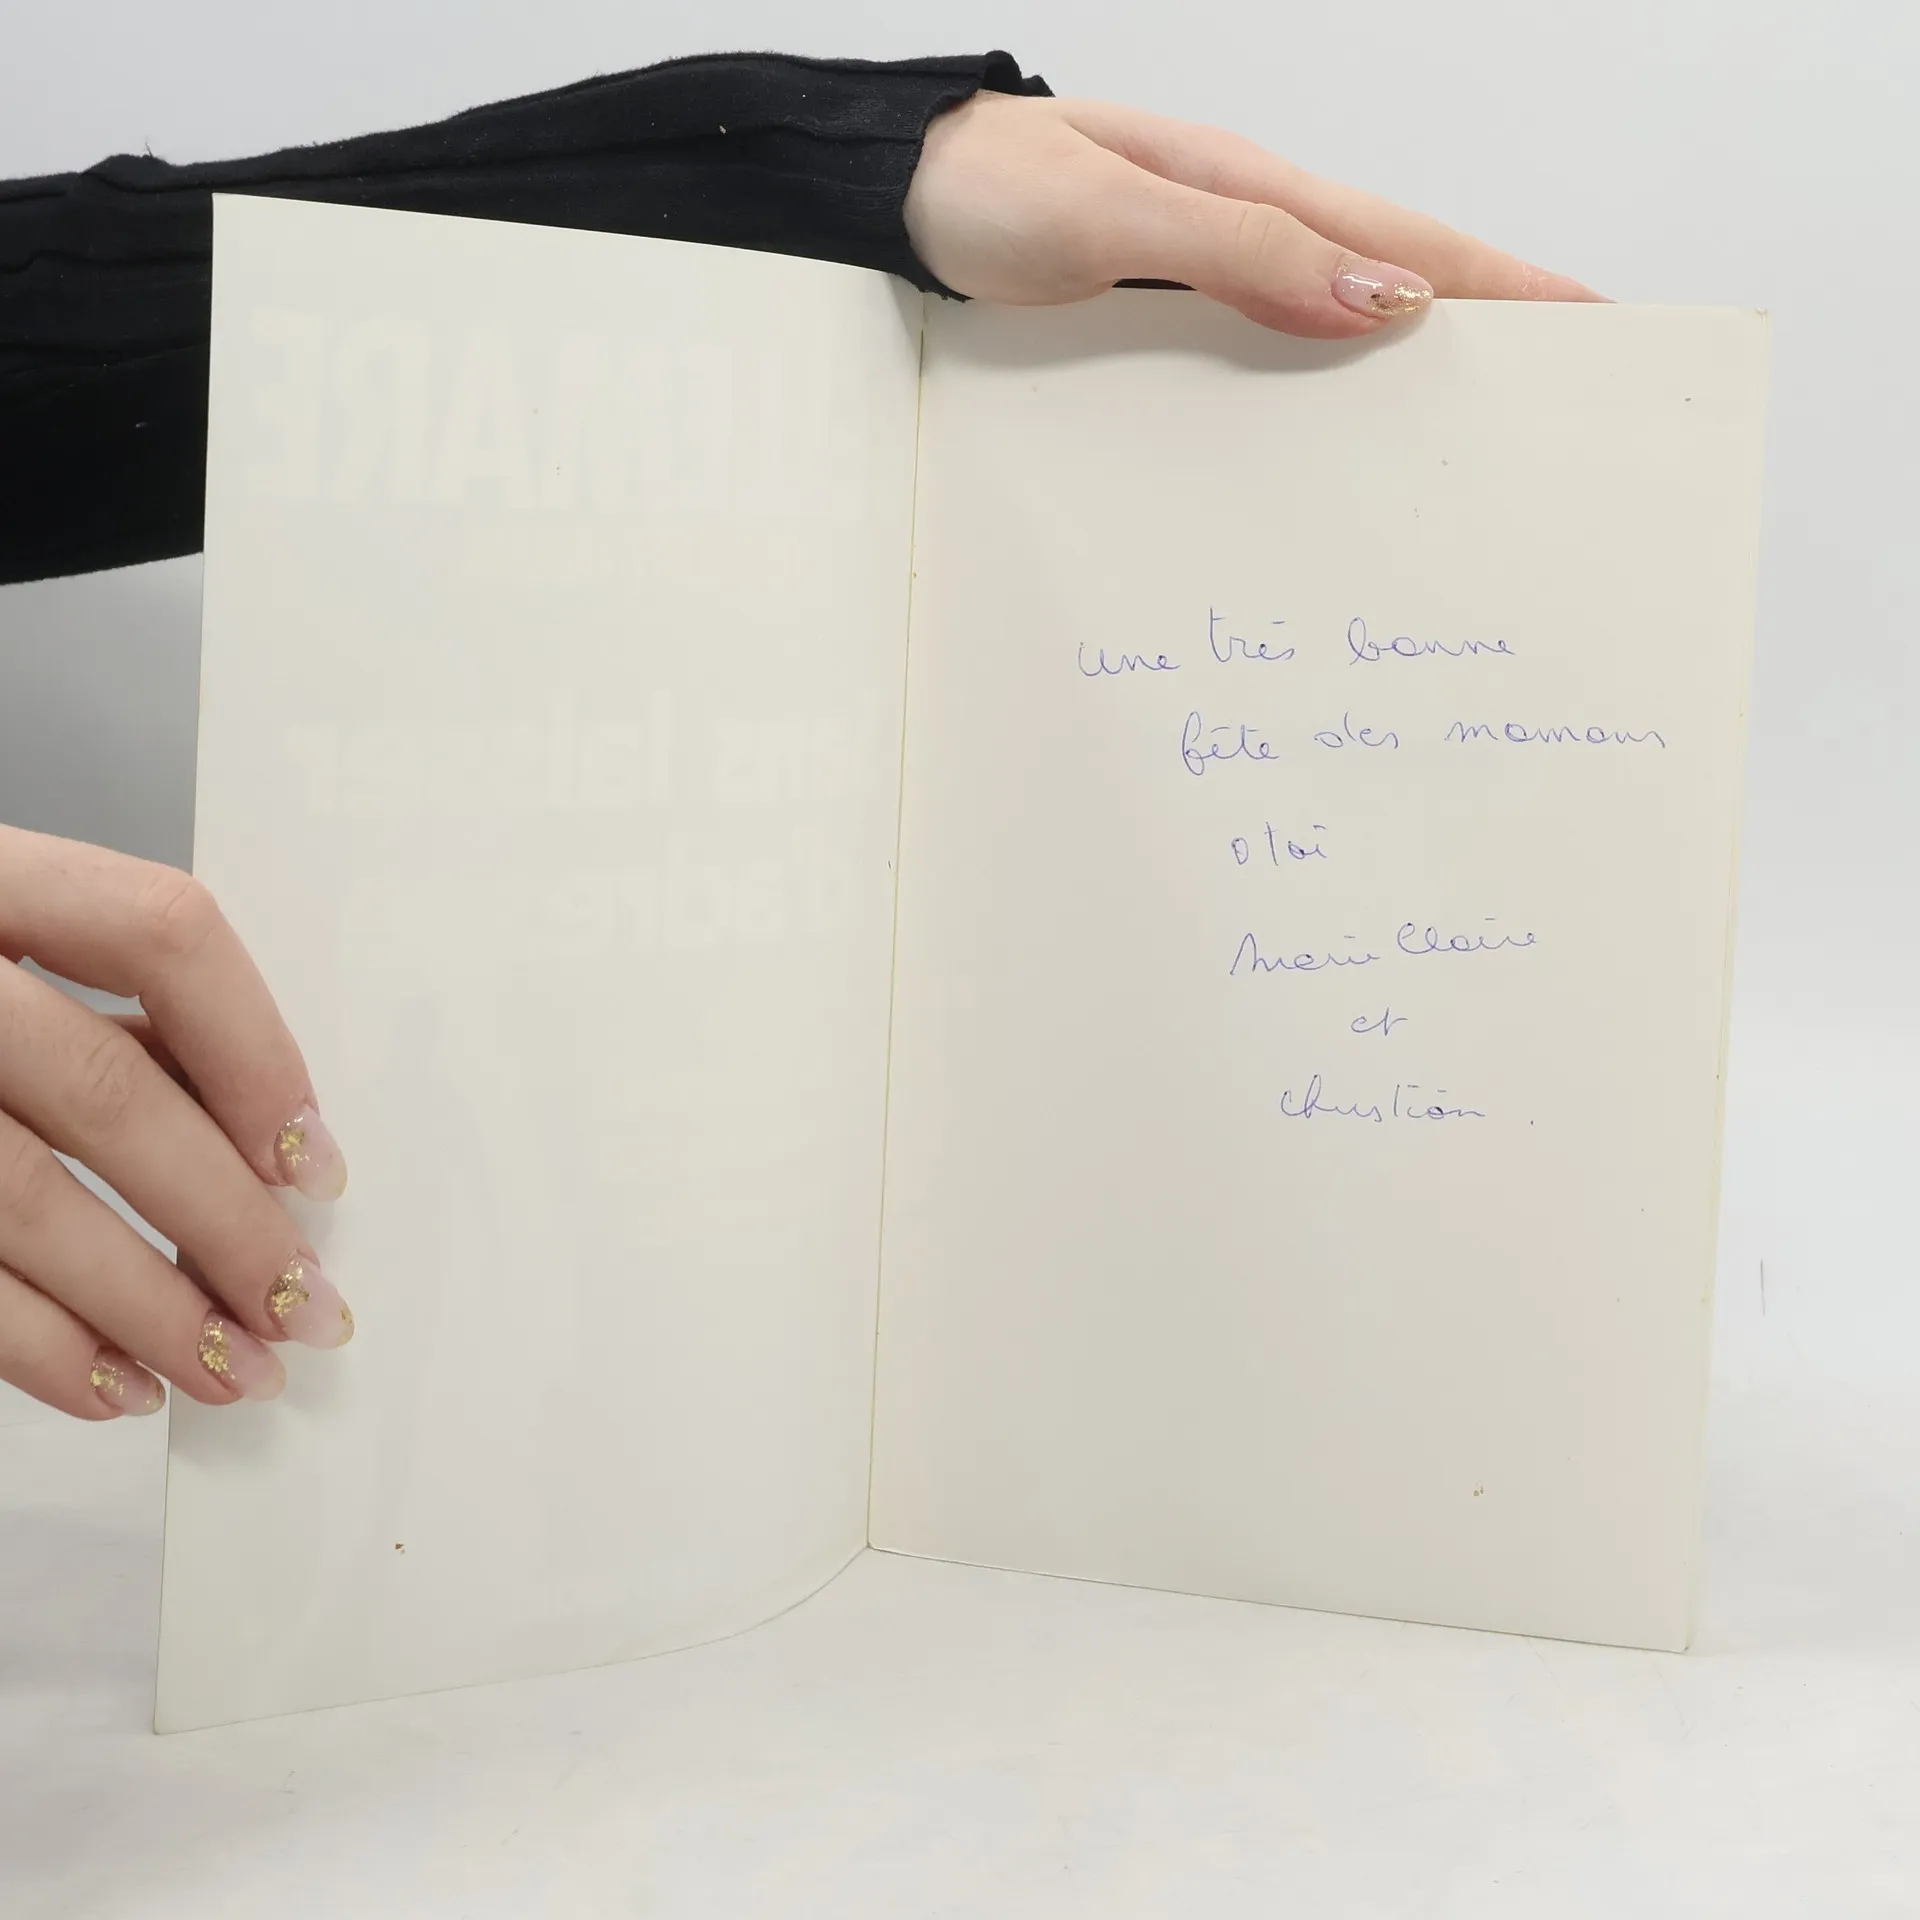 une très bonne
fête des mamans
a toi
Marie Claire
et
Christian.